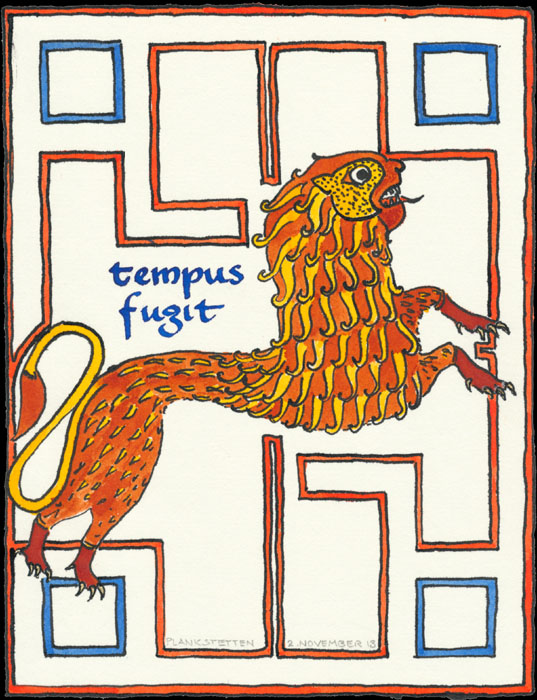 tempus
fugit
PLANKSTETTEN 2.NOVEMBER 13